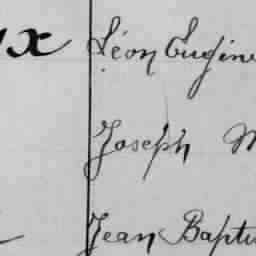 x Léon Eugène
Joseph M
Jean Baptis